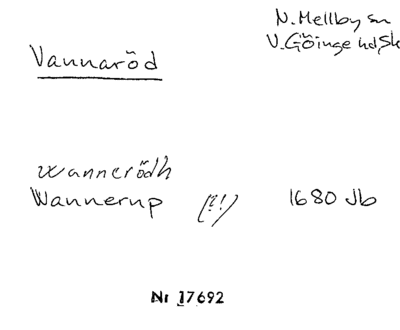 N. Mellby sn
Vannaröd V. Göinge hd, Sk
Wannerödh
Wannerup (?!) 1680 Jb
Nr 17692